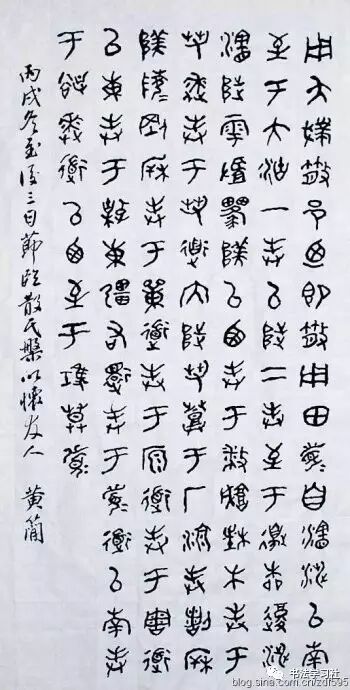 用夨撲散邑迺即散用田眉自瀗涉以南
至于大沽一封以陟二封至于邊柳復涉
瀗陟雩陕以西封于城木封于
芻逨封于芻道內陟芻登于厂湶封
陕陵剛封于道封于原道封于周道
以東封于東疆右還封于眉道以南封
于逨道以西至于莫眉
丙戌冬至後三日節臨散氏盤以懷友人 黄簡
书法学习社
blog.sina.com.cn/zdf595